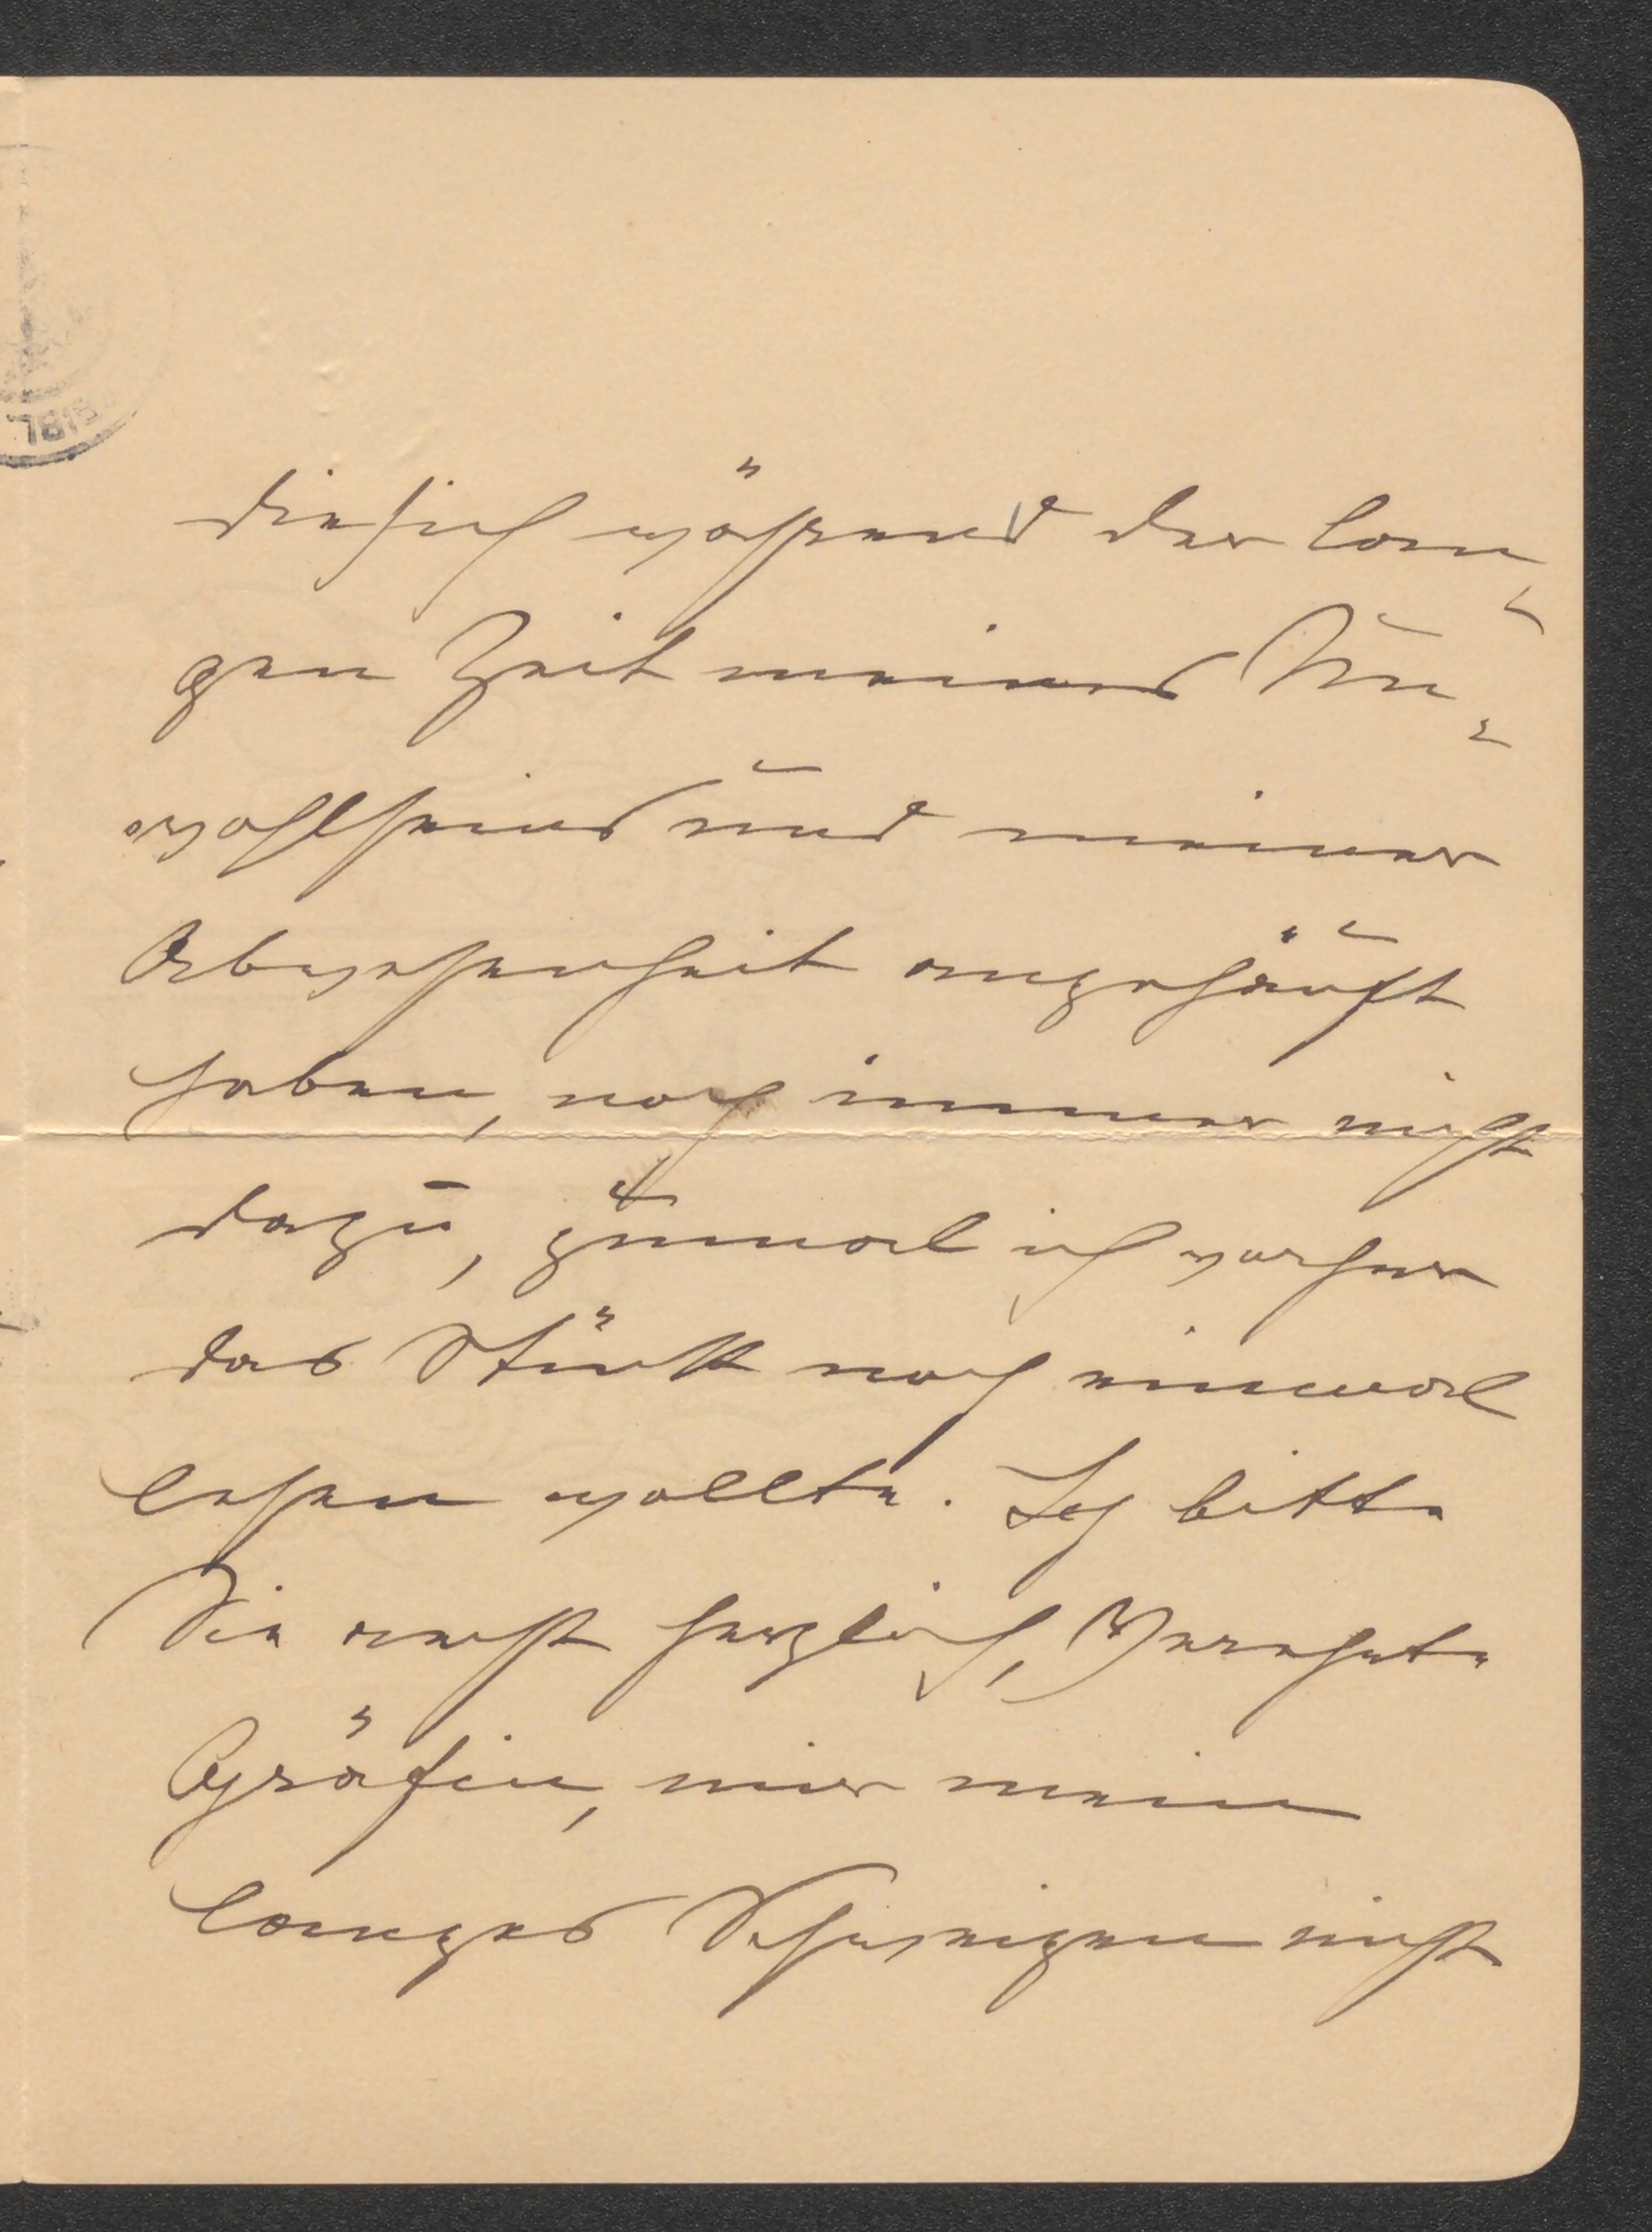 die sich während der lan-
gen Zeit meines Un-
wohlseins und meiner
Abwesenheit angehäuft
haben, noch immer nicht
dazu, zumal ich vorher
das Stück noch einmal
lesen wollte. Ich bitte
Sie recht herzlich, Verehrte
Gräfin, mir mein
langes Schweigen nicht